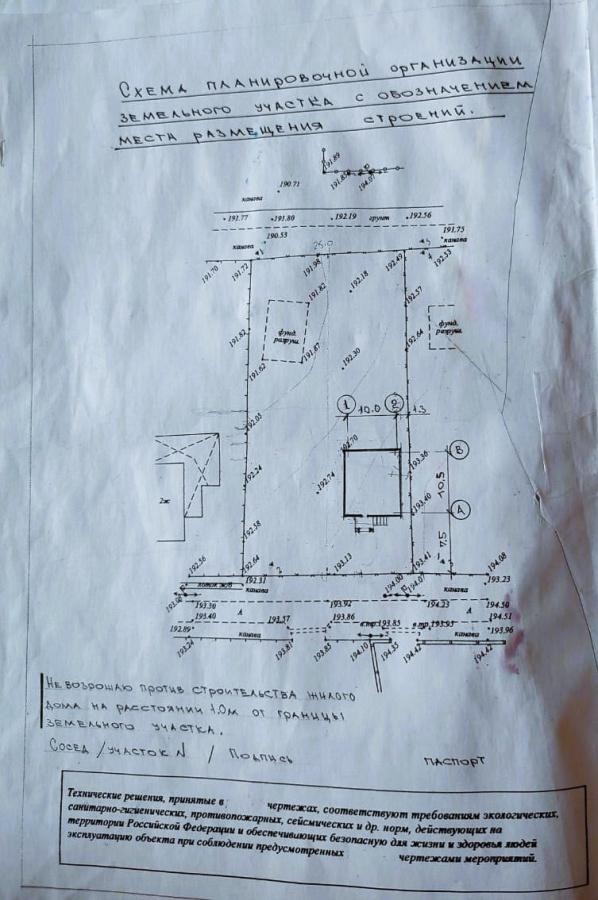 Схема планировочной организации
земельного участка с обозначением
места размещения строений.
191.89
191.85 194.07
канава 190.71
191.77 191.80 192.19 грунт 192.56
канава 190.53
191.75
канава
25.0
191.70 191.72 191.98 192.49 192.53
191.82 192.18 192.57
фунд. разруш.
фунд. разруш.
191.82 191.87 192.64
191.62 192.30
1 10.0 2 1.3
192.03
192.70
193.36 В
192.24 192.74
10.5
2ж
193.40 А
192.38
7.5
192.56 192.64 193.13 193.41 194.08
лоток ж/б 192.31 194.00 194.07 193.23
канава канава
193.30 А 193.92 194.23 А 194.50
193.40 193.57 193.86 в.тр.193.85 в.тр.193.95 194.51
192.89 канава канава 193.96
193.24 193.81 193.85 194.10 194.35 194.42 194.42
Не возрошаю против строительства жилого
дома на расстоянии 1.0м от границы
земельного участка.
Сосед /участок N / Подпись
паспорт
Технические решения, принятые в чертежах, соответствуют требованиям экологических,
санитарно-гигиенических, противопожарных, сейсмических и др. норм, действующих на
территории Российской Федерации и обеспечивающих безопасную для жизни и здоровья людей
эксплуатацию объекта при соблюдении предусмотренных чертежами мероприятий.